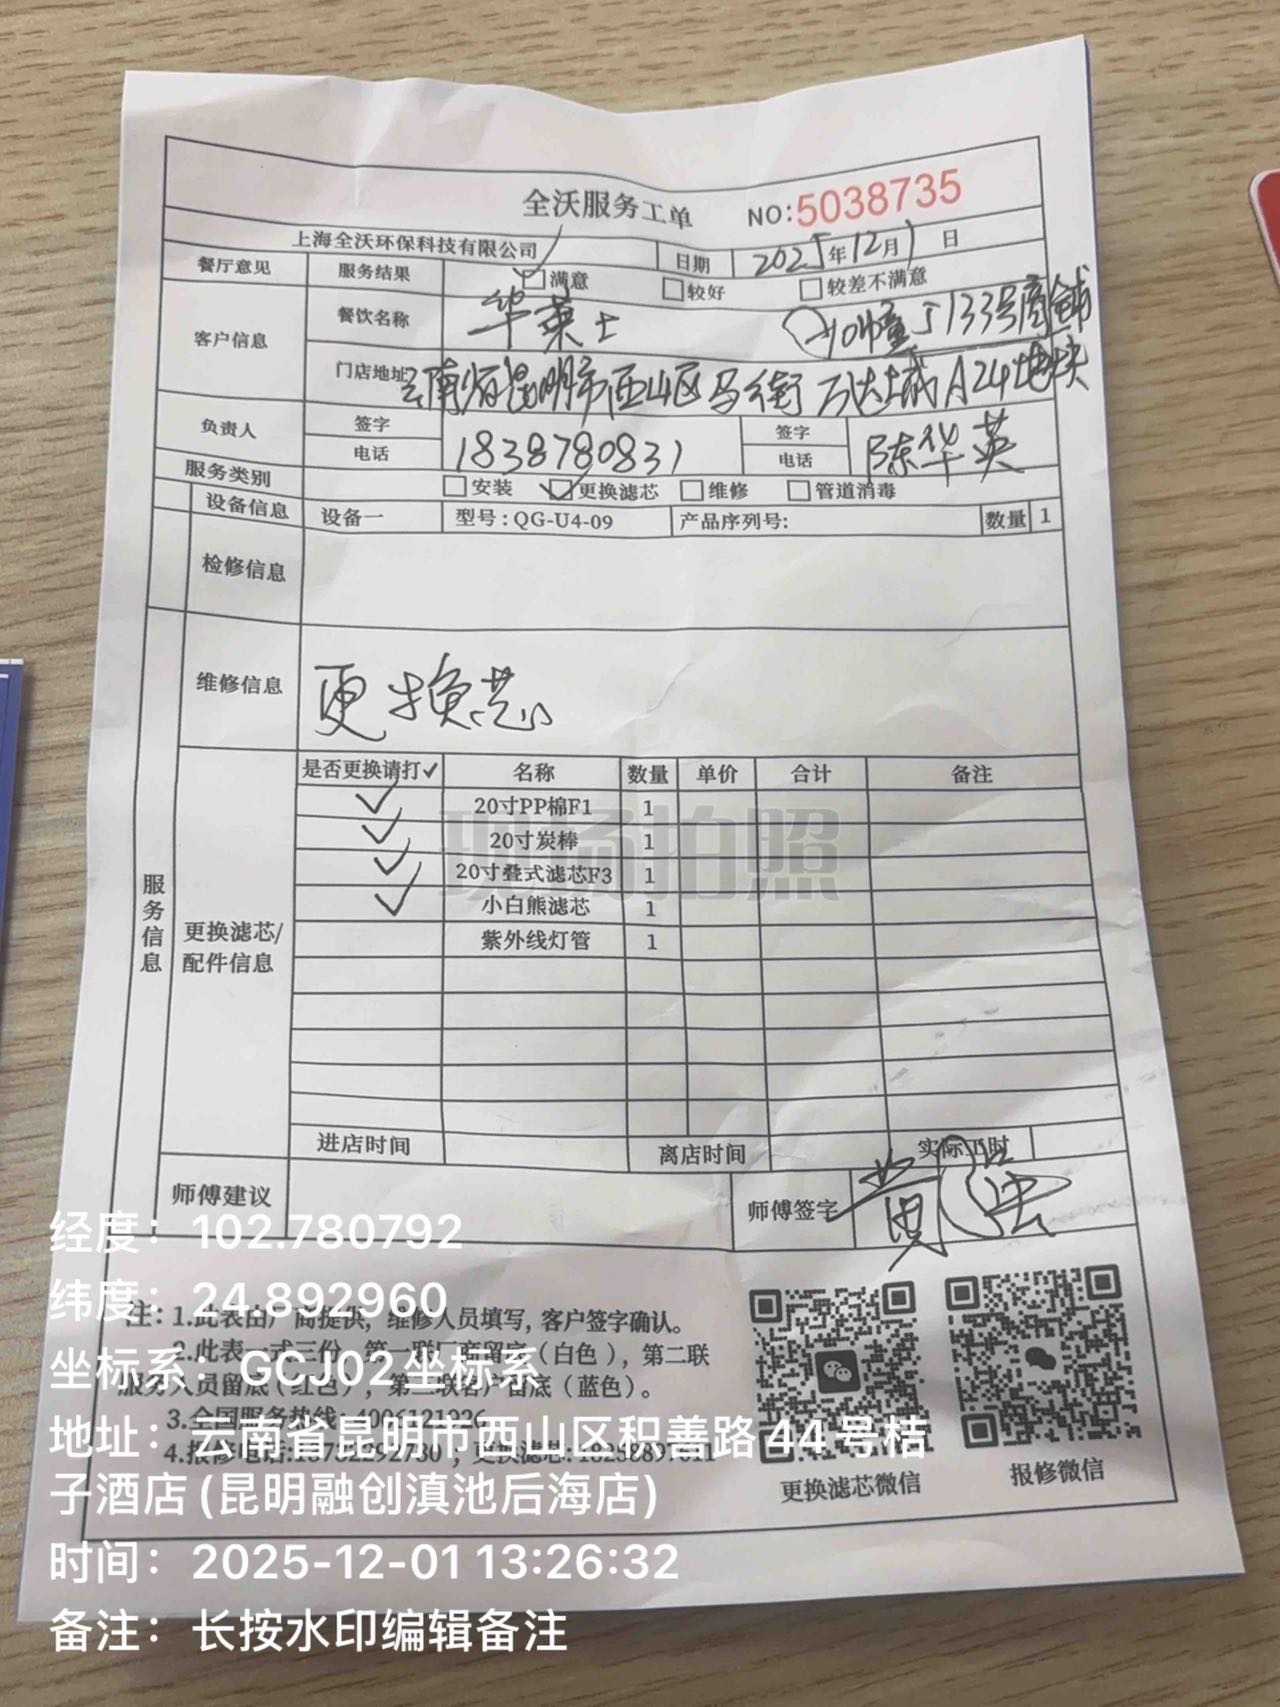 全沃服务工单 NO:5038735
上海全沃环保科技有限公司 日期 2025年12月1日
餐厅意见 服务结果 满意 较好 较差不满意
客户信息 餐饮名称 华莱士 幢 133号商铺
门店地址 云南省昆明市西山区马街万达土城A24地块
负责人 签字 签字
电话 1838780831 电话 陈华英
服务类别 安装 ✓更换滤芯 维修 管道消毒
设备信息 设备一 型号:QG-U4-09 产品序列号: 数量 1
检修信息
维修信息 更换芯
服务信息
更换滤芯/配件信息
是否更换请打✓ 名称 数量 单价 合计 备注
✓ 20寸PP棉F1 1
✓ 20寸炭棒 1
✓ 20寸叠式滤芯F3 1
✓ 小白熊滤芯 1
紫外线灯管 1
现场拍照
进店时间 离店时间 实际工时
师傅建议 师傅签字 黄
注: 1.此表由厂商提供, 维修人员填写, 客户签字确认。
2.此表一式三份, 第一联厂商留底(白色), 第二联
服务人员留底(红色), 第三联客户留底(蓝色)。
3.全国服务热线:
4.报修电话: ; 更换滤芯:
更换滤芯微信 报修微信
经度：102.780792
纬度：24.892960
坐标系：GCJ02坐标系
地址：云南省昆明市西山区积善路44号桔
子酒店(昆明融创滇池后海店)
时间：2025-12-01 13:26:32
备注：长按水印编辑备注